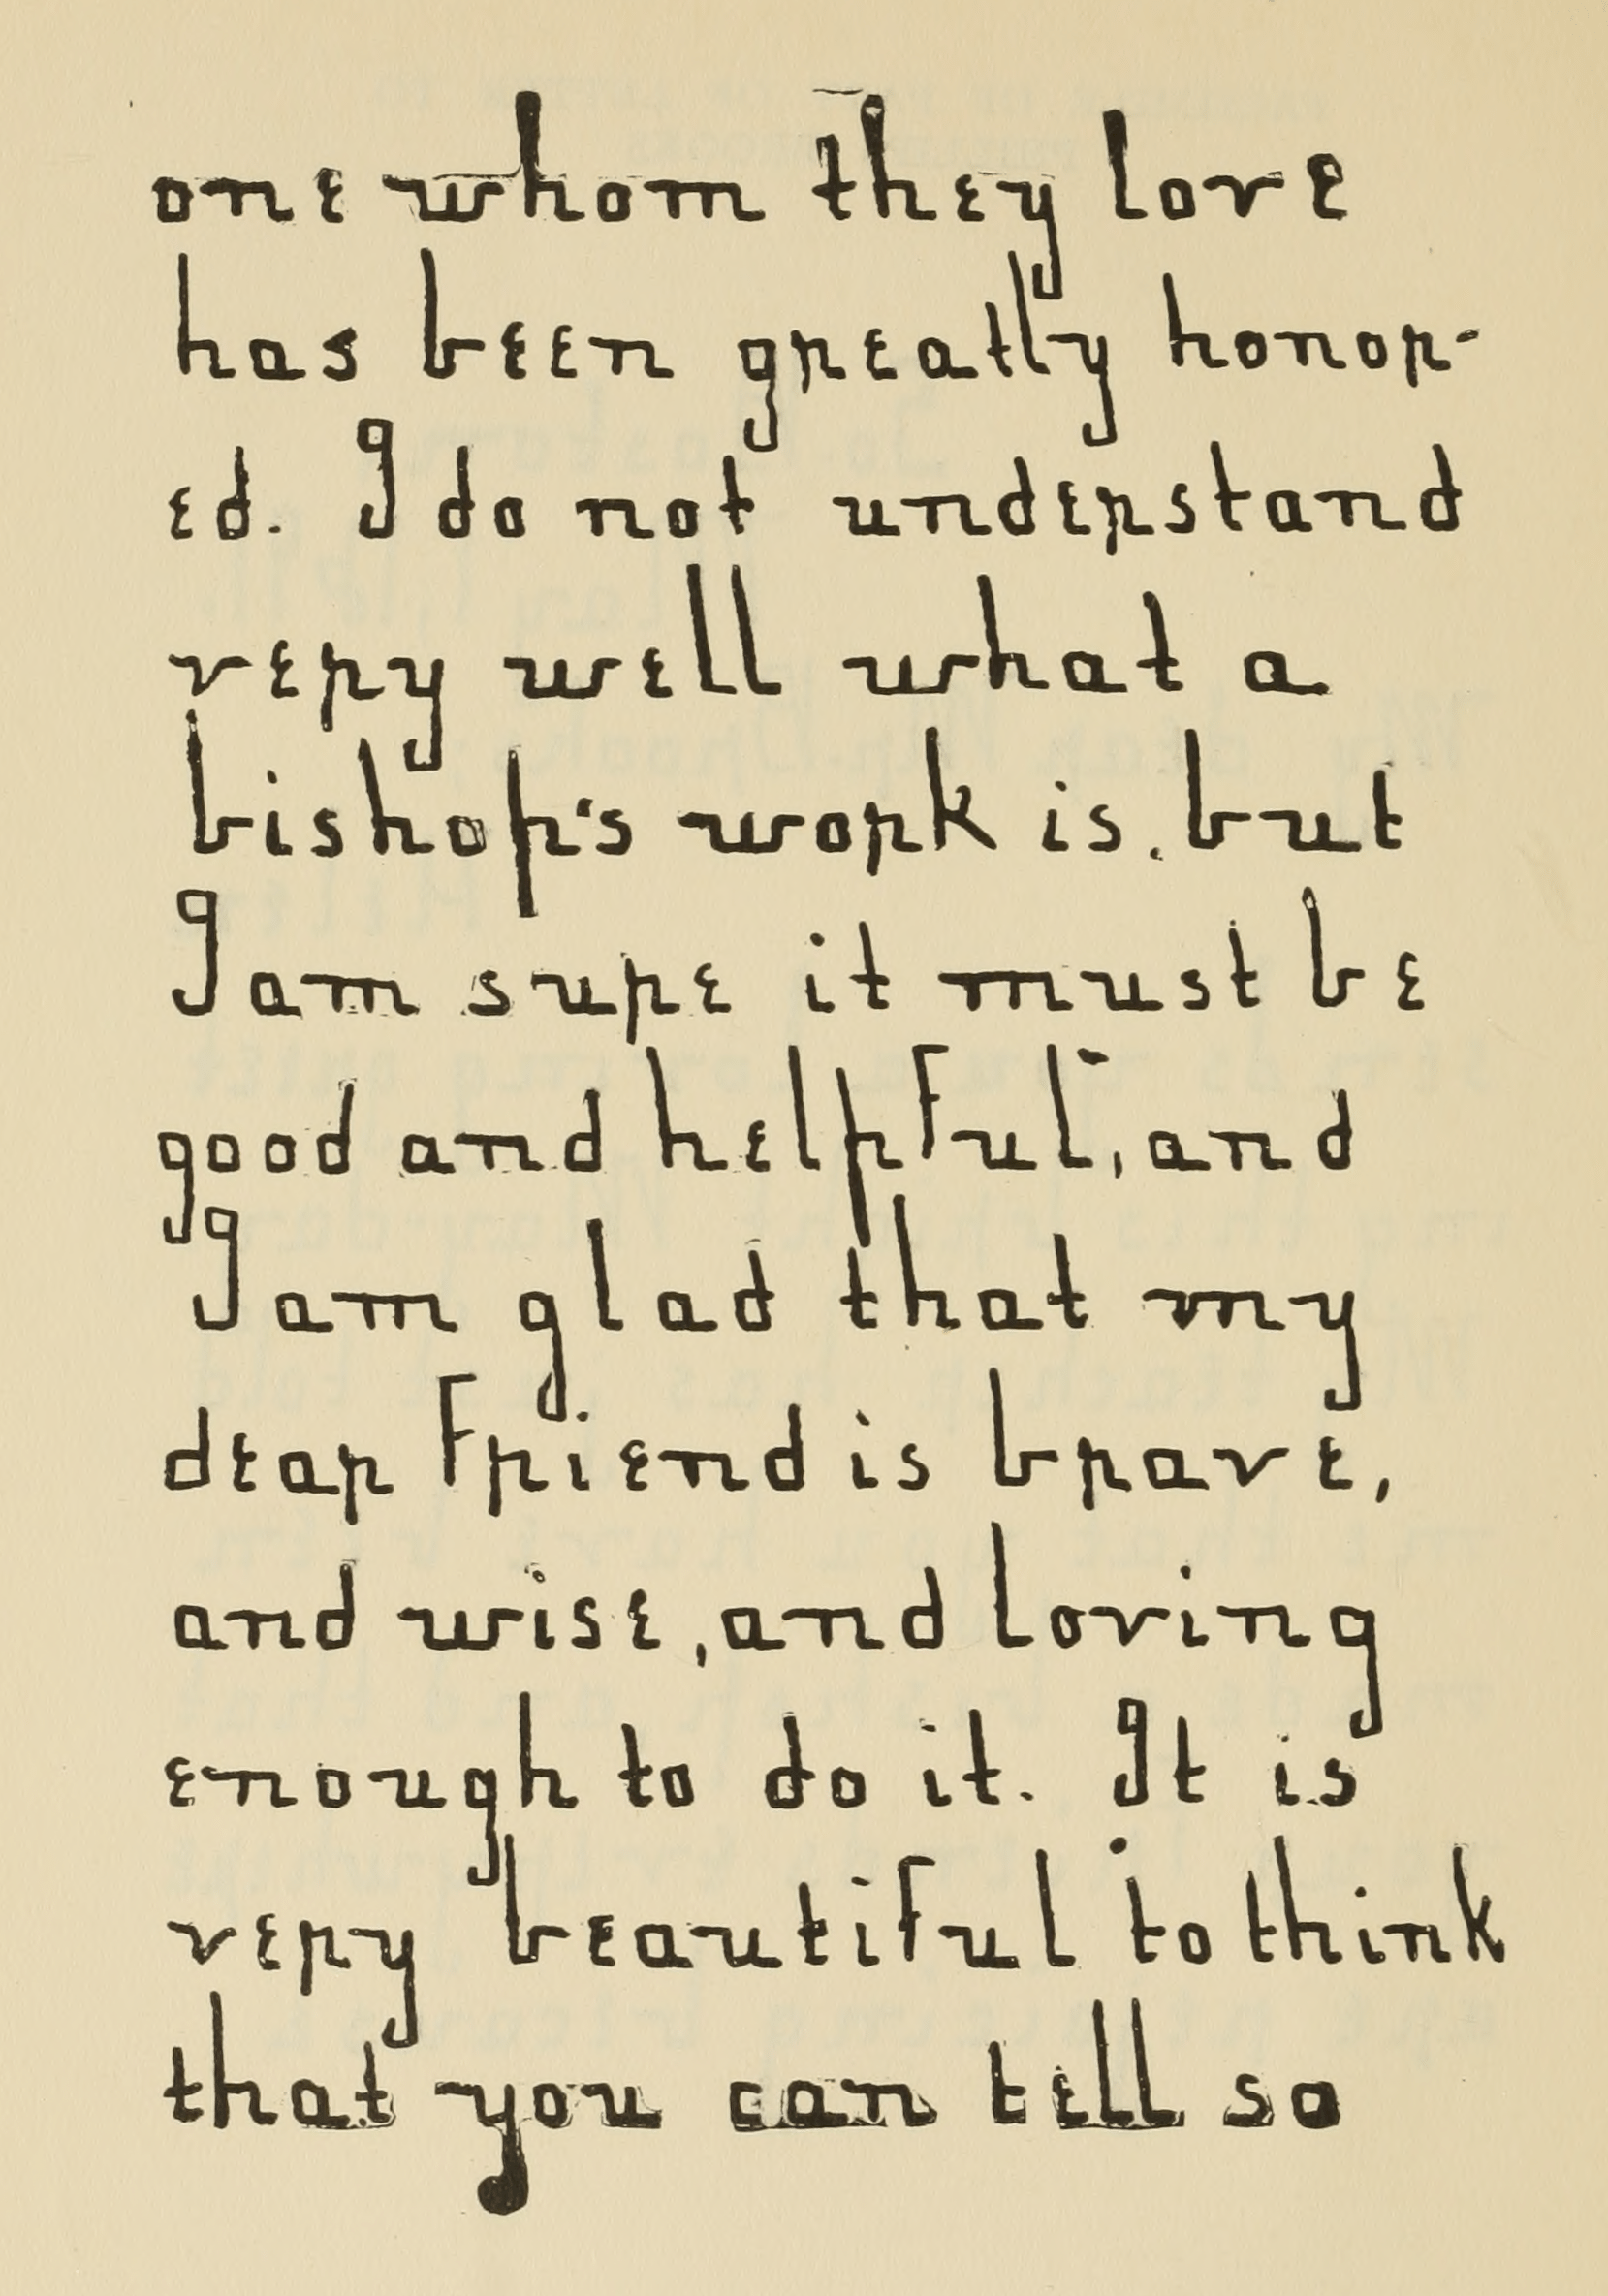 one whom they love
has been greatly honor-
ed. I do not understand
very well what a
bishop's work is. but
I am sure it must be
good and helpful, and
I am glad that my
dear friend is brave,
and wise, and loving
enough to do it. It is
very beautiful to think
that you can tell so